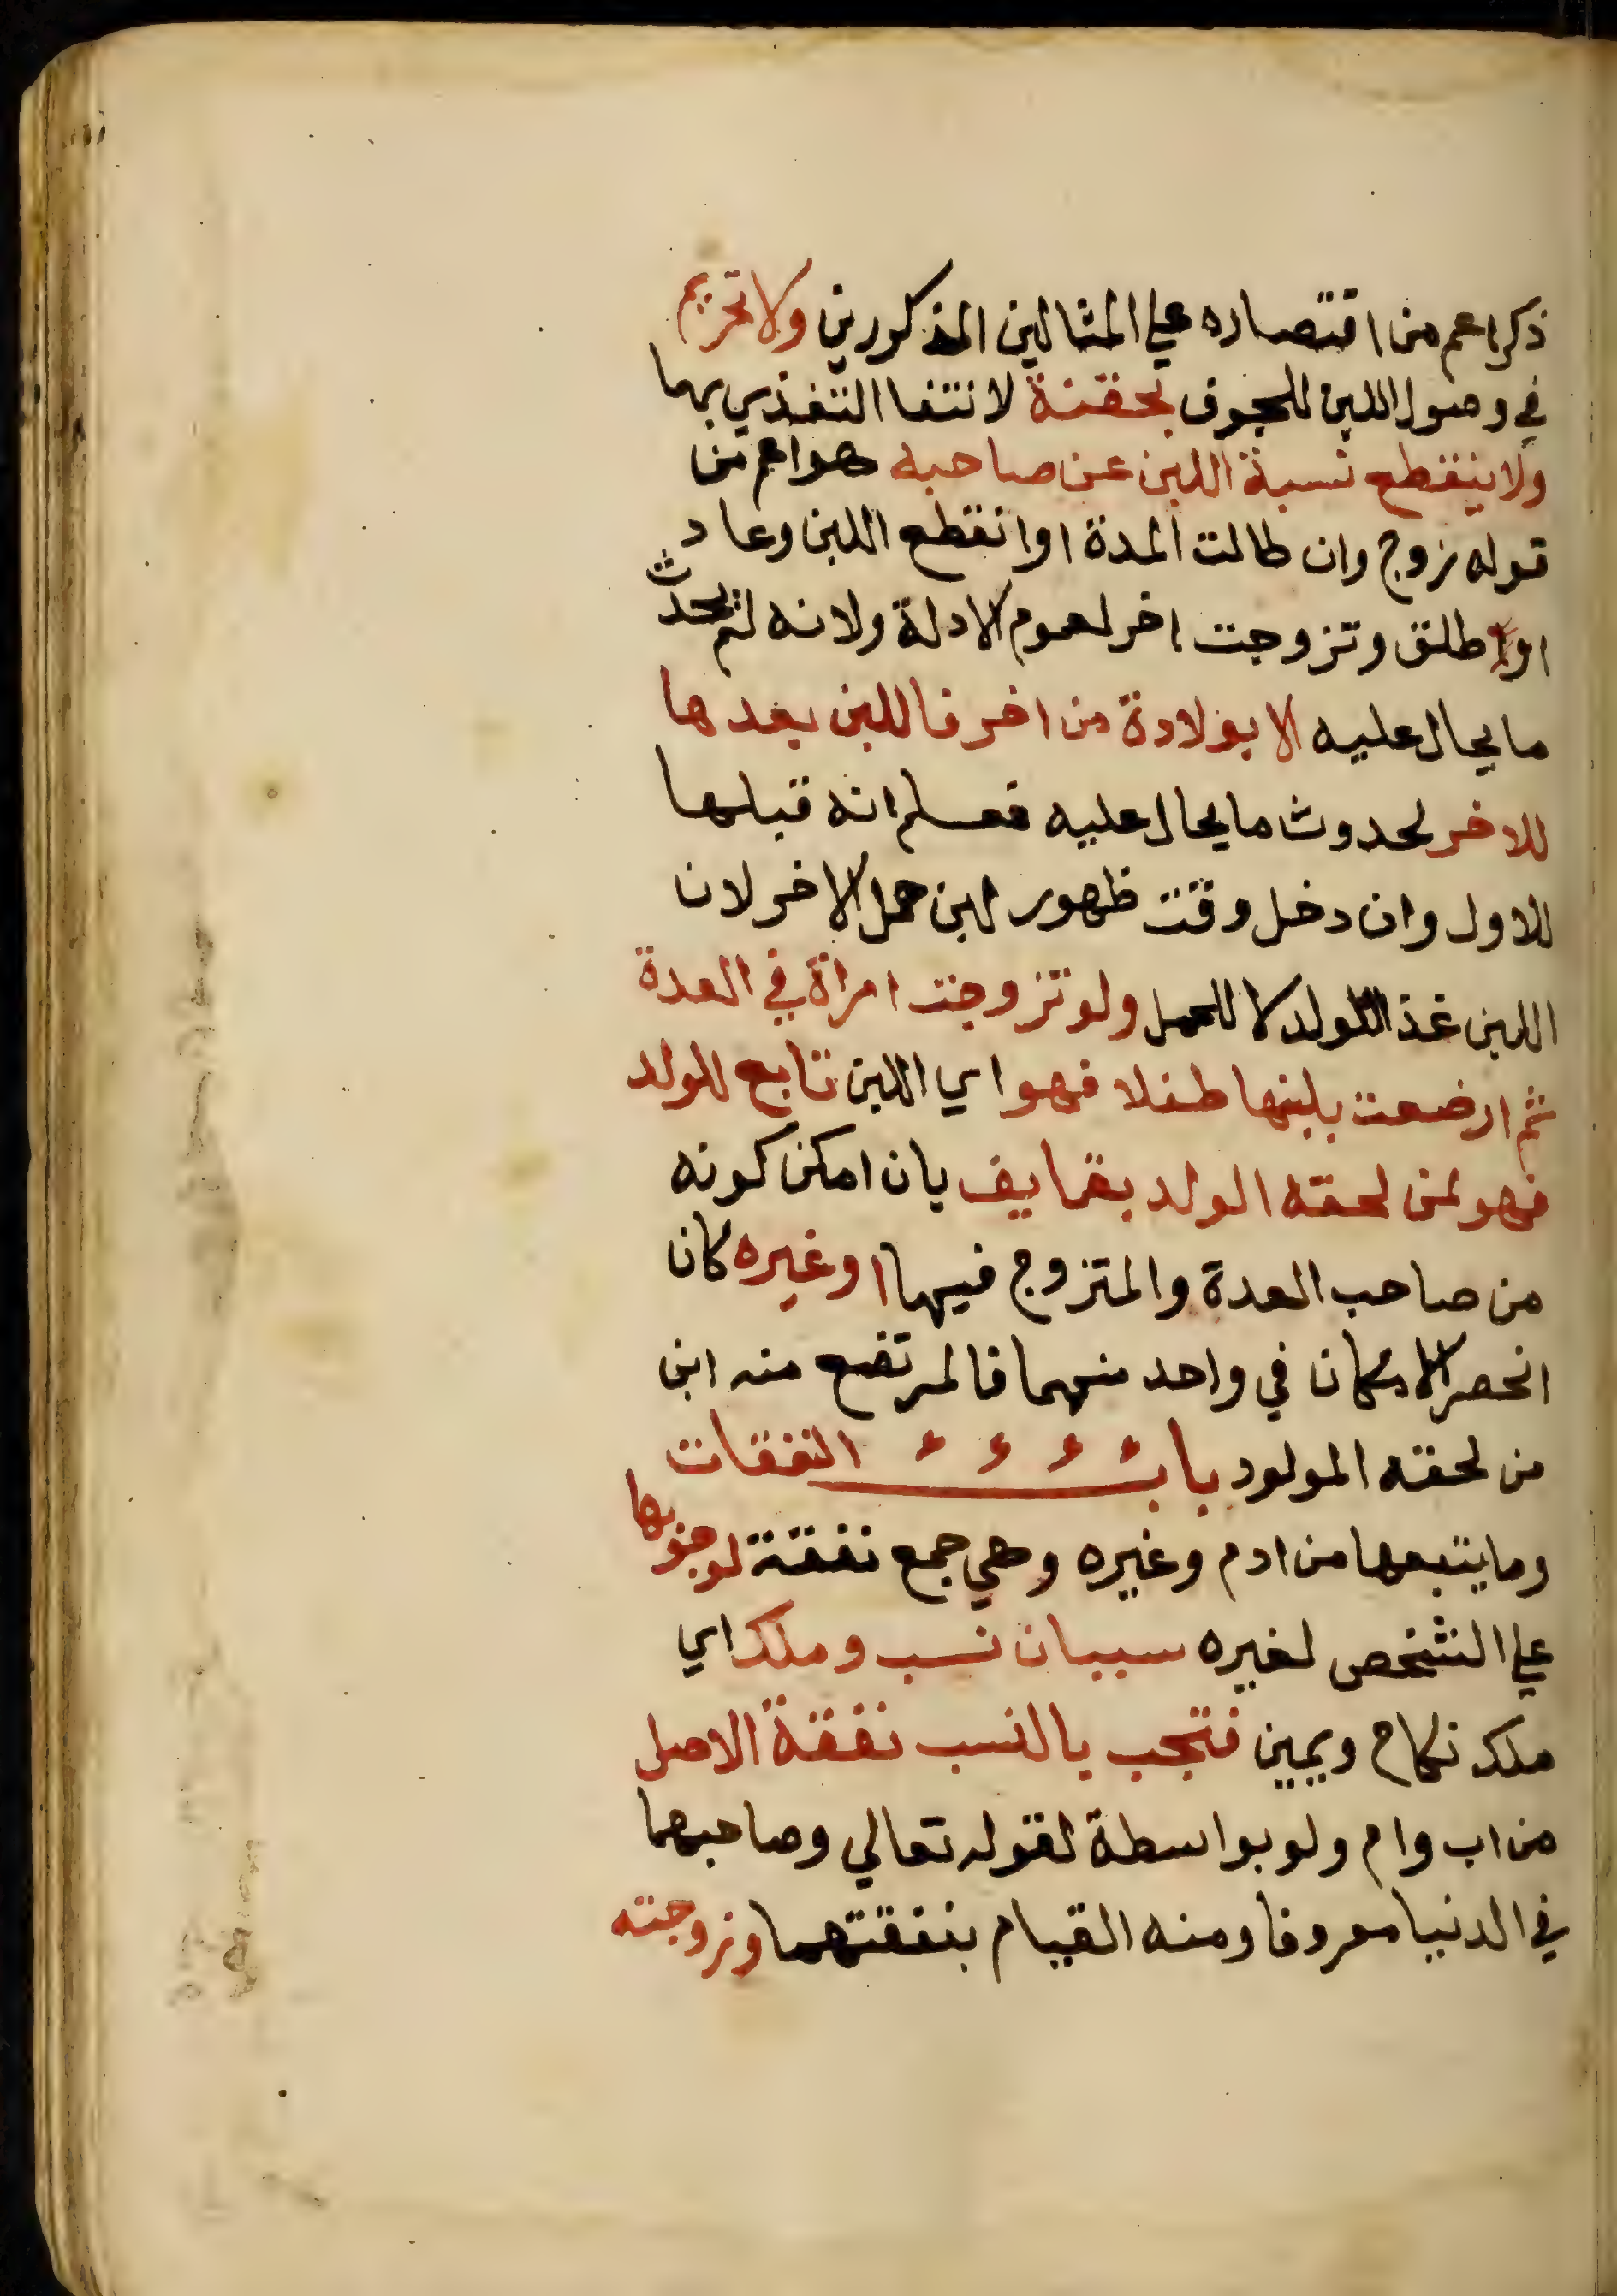 ذكر اعم من اقتصاره علي المثالين المذكورين ولا تحريم
في وصول اللبن للجوف بحقنة لانتفا التغذي بهما
ولا ينقطع نسبة اللبن عن صاحبه هو اعم من
قوله زوج وان طالت المدة او انقطع اللبن وعاد
او طلق وتزوجت اخر لعموم الادلة ولانه لم يحدث
ما يحال عليه الا بولادة من اخر فاللبن بعدها
للاخر لحدوث ما يحال عليه فعلم انه قبلها
للاول وان دخل وقت ظهور لبن حمل الاخر لان
اللبن غذا للولد لا للحمل ولو تزوجت امراة في العدة
ثم ارضعت بلبنها طفلا فهو اي اللبن تابع للولد
فهو لمن لحقه الولد بقايف بان امكن كونه
من صاحب العدة والمتزوج فيها او غيره كان
انحصر الامكان في واحد منهما فالمرتضع منه ابن
من لحقه المولود باب النفقات
وما يتبعها من ادم وغيره وهي جمع نفقة لوجوبها
علي الشخص لغيره سببان نسب وملك اي
ملك نكاح ويمين فتجب بالنسب نفقة الاصل
من اب وام ولو بواسطة لقوله تعالي وصاحبهما
في الدنيا معروفا ومنه القيام بنفقتهما وزوجته